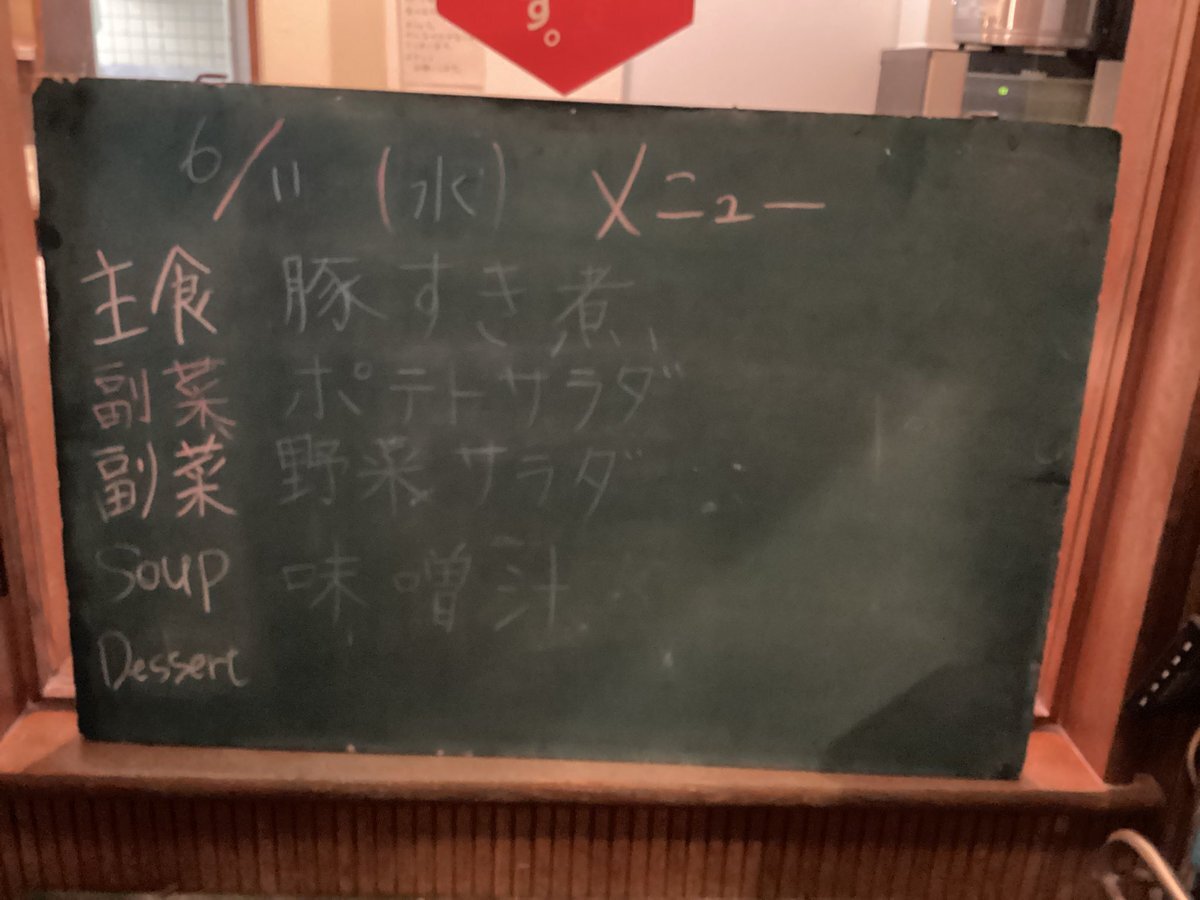 g。
6/11 (水) メニュー
主食 豚すき煮
副菜 ポテトサラダ
副菜 野菜サラダ
Soup 味噌汁
Dessert